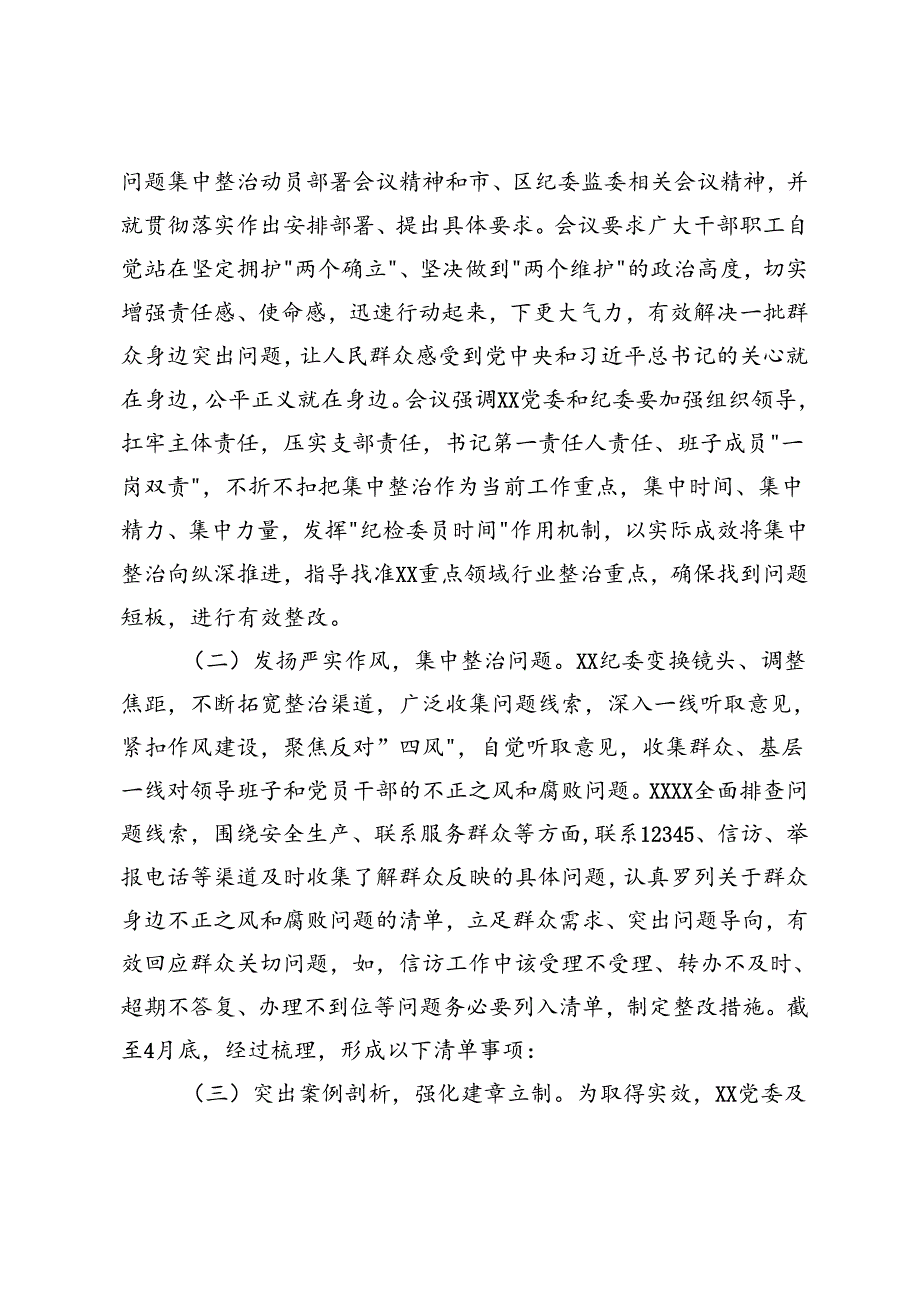 问题集中整治动员部署会议精神和市、区纪委监委相关会议精神，并
就贯彻落实作出安排部署、提出具体要求。会议要求广大干部职工自
觉站在坚定拥护"两个确立"、坚决做到"两个维护"的政治高度，切实
增强责任感、使命感，迅速行动起来，下更大气力，有效解决一批群
众身边突出问题，让人民群众感受到党中央和习近平总书记的关心就
在身边，公平正义就在身边。会议强调XX党委和纪委要加强组织领导，
扛牢主体责任，压实支部责任，书记第一责任人责任、班子成员"一
岗双责"，不折不扣把集中整治作为当前工作重点，集中时间、集中
精力、集中力量，发挥"纪检委员时间"作用机制，以实际成效将集中
整治向纵深推进，指导找准XX重点领域行业整治重点，确保找到问题
短板，进行有效整改。
（二）发扬严实作风，集中整治问题。XX纪委变换镜头、调整
焦距，不断拓宽整治渠道，广泛收集问题线索，深入一线听取意见，
紧扣作风建设，聚焦反对”四风"，自觉听取意见，收集群众、基层
一线对领导班子和党员干部的不正之风和腐败问题。XXXX全面排查问
题线索，围绕安全生产、联系服务群众等方面,联系12345、信访、举
报电话等渠道及时收集了解群众反映的具体问题，认真罗列关于群众
身边不正之风和腐败问题的清单，立足群众需求、突出问题导向，有
效回应群众关切问题，如，信访工作中该受理不受理、转办不及时、
超期不答复、办理不到位等问题务必要列入清单，制定整改措施。截
至4月底，经过梳理，形成以下清单事项：
（三）突出案例剖析，强化建章立制。为取得实效，XX党委及